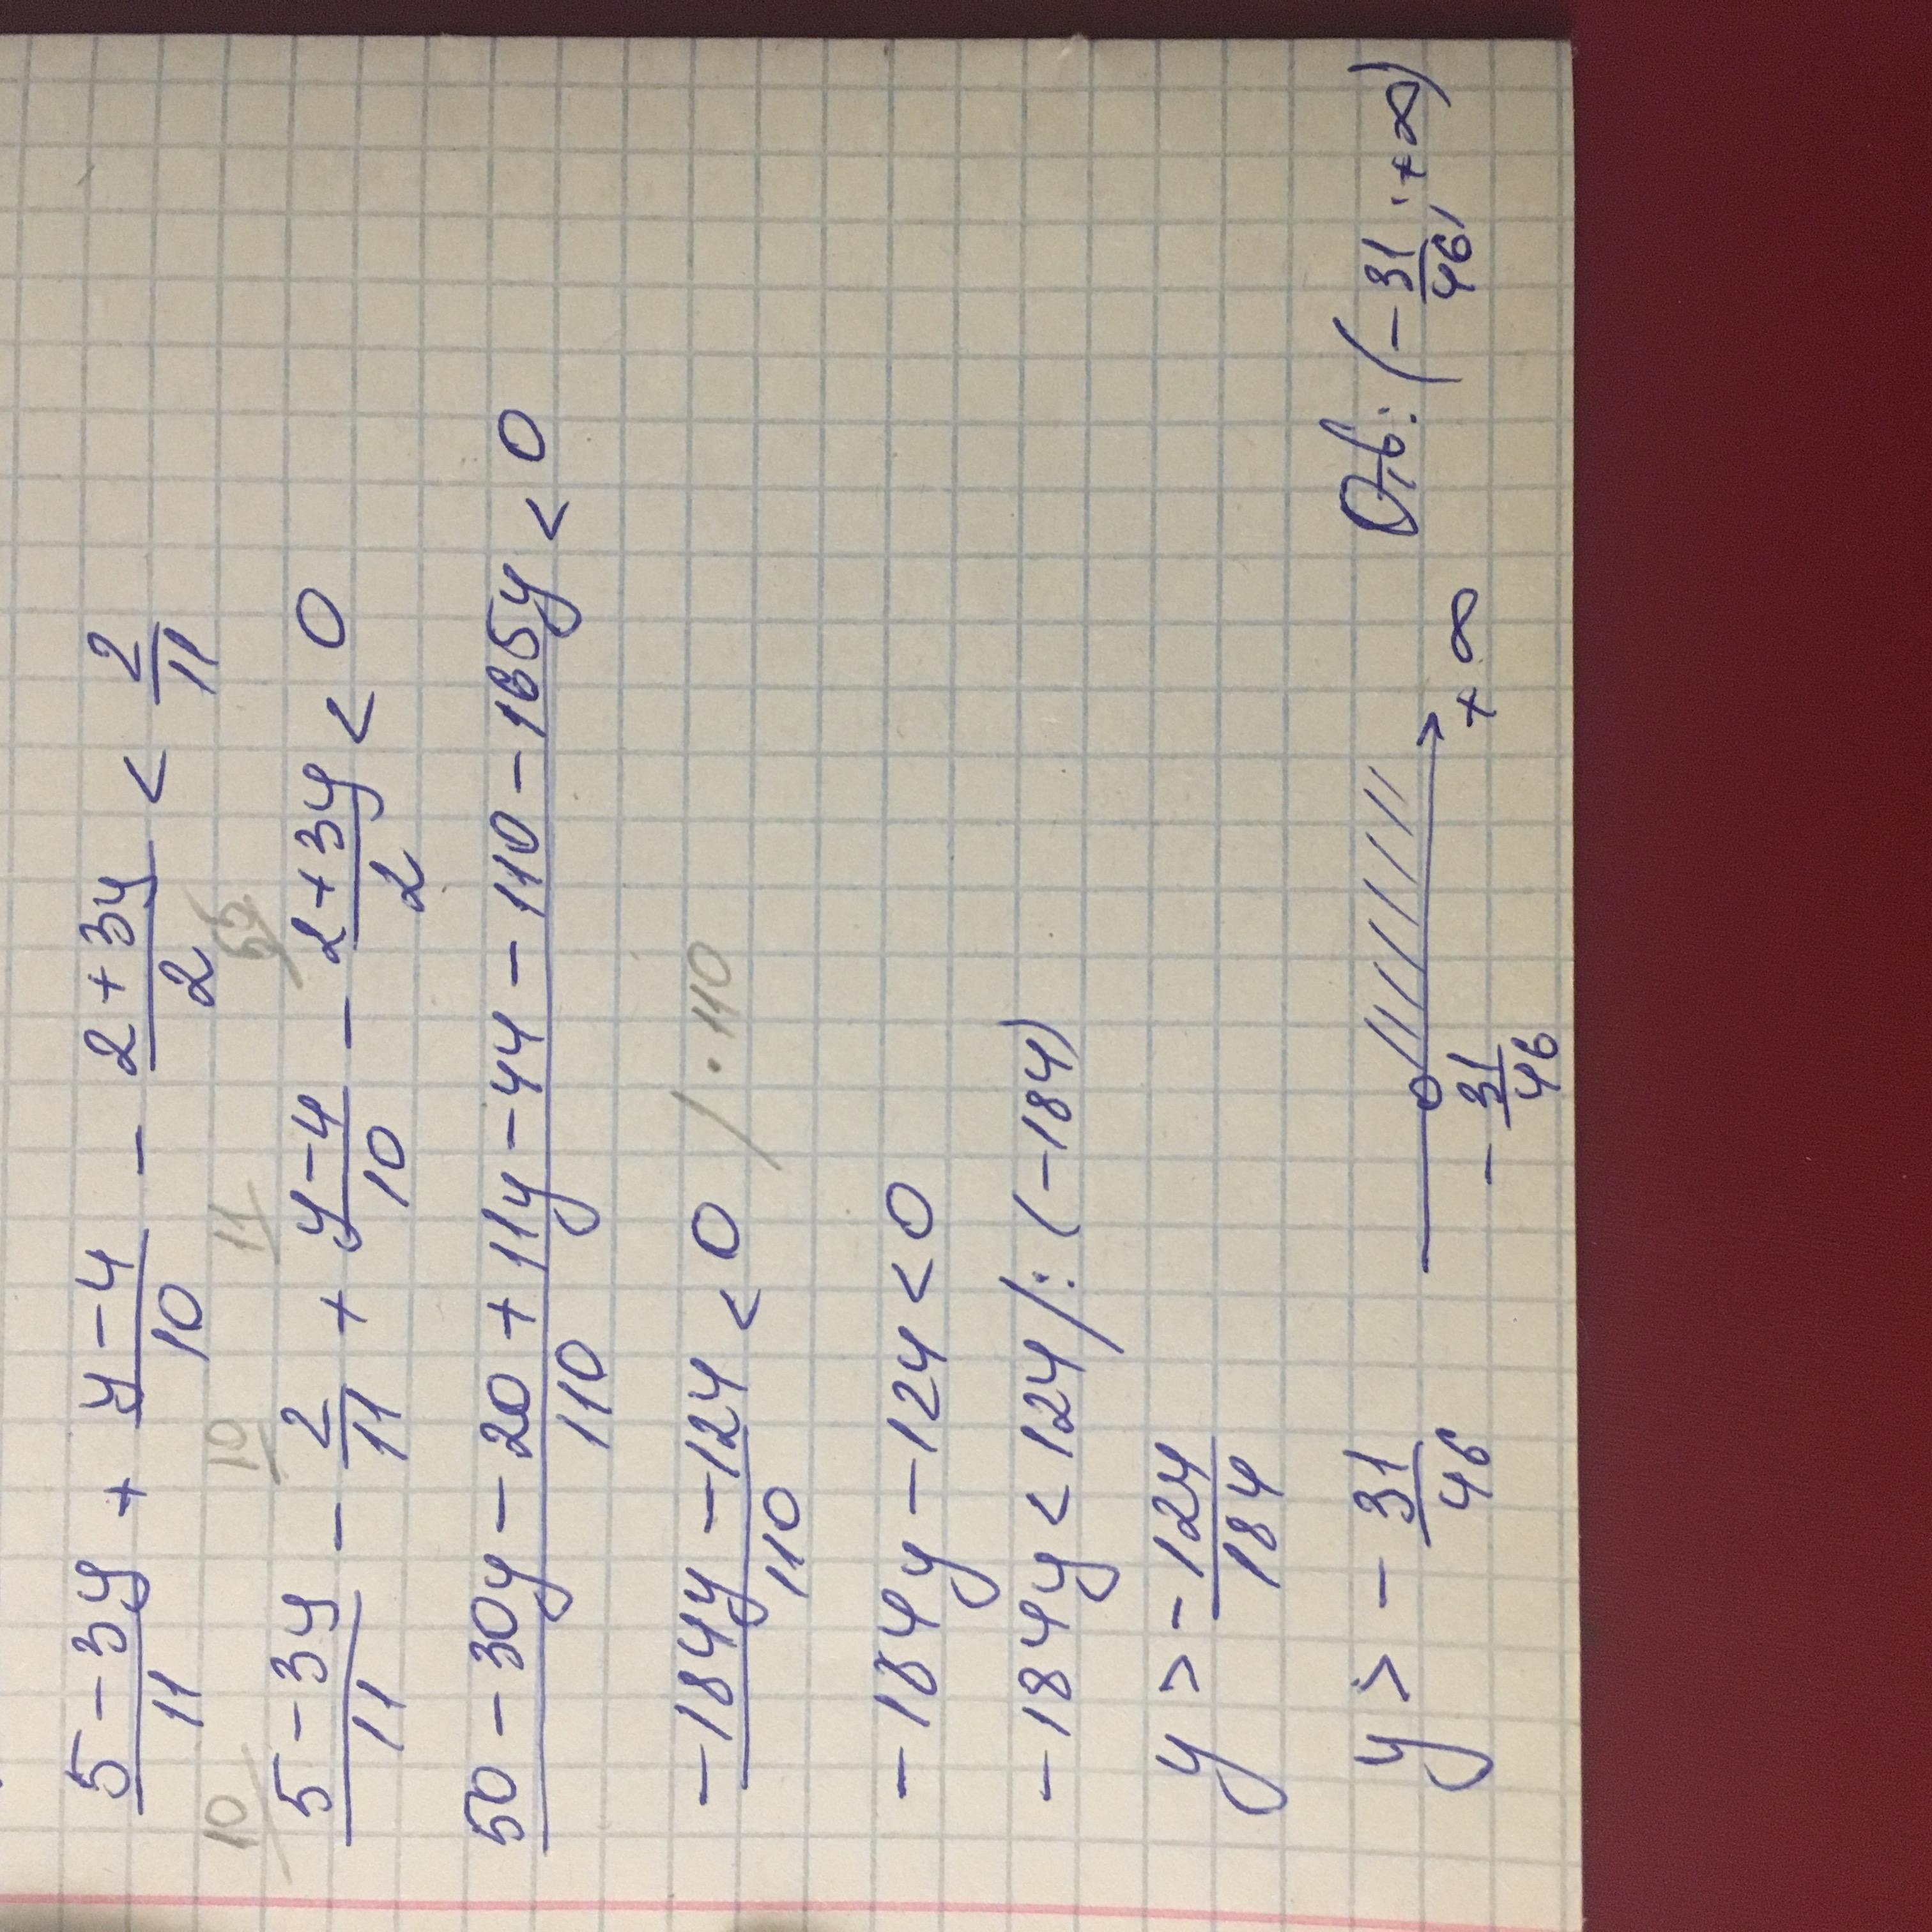 5-3y/11 + y-4/10 - 2+3y/2 < 2/11
10 10 11 55
5-3y/11 - 2/11 + y-4/10 - 2+3y/2 < 0
50-30y-20+11y-44-110-165y/110 < 0
-184y-124/110 < 0 /·110
-184y-124<0
-184y<124/:(-184)
y>-124/184
y>-31/46 -31/46 +∞ Отв: (-31/46; +∞)